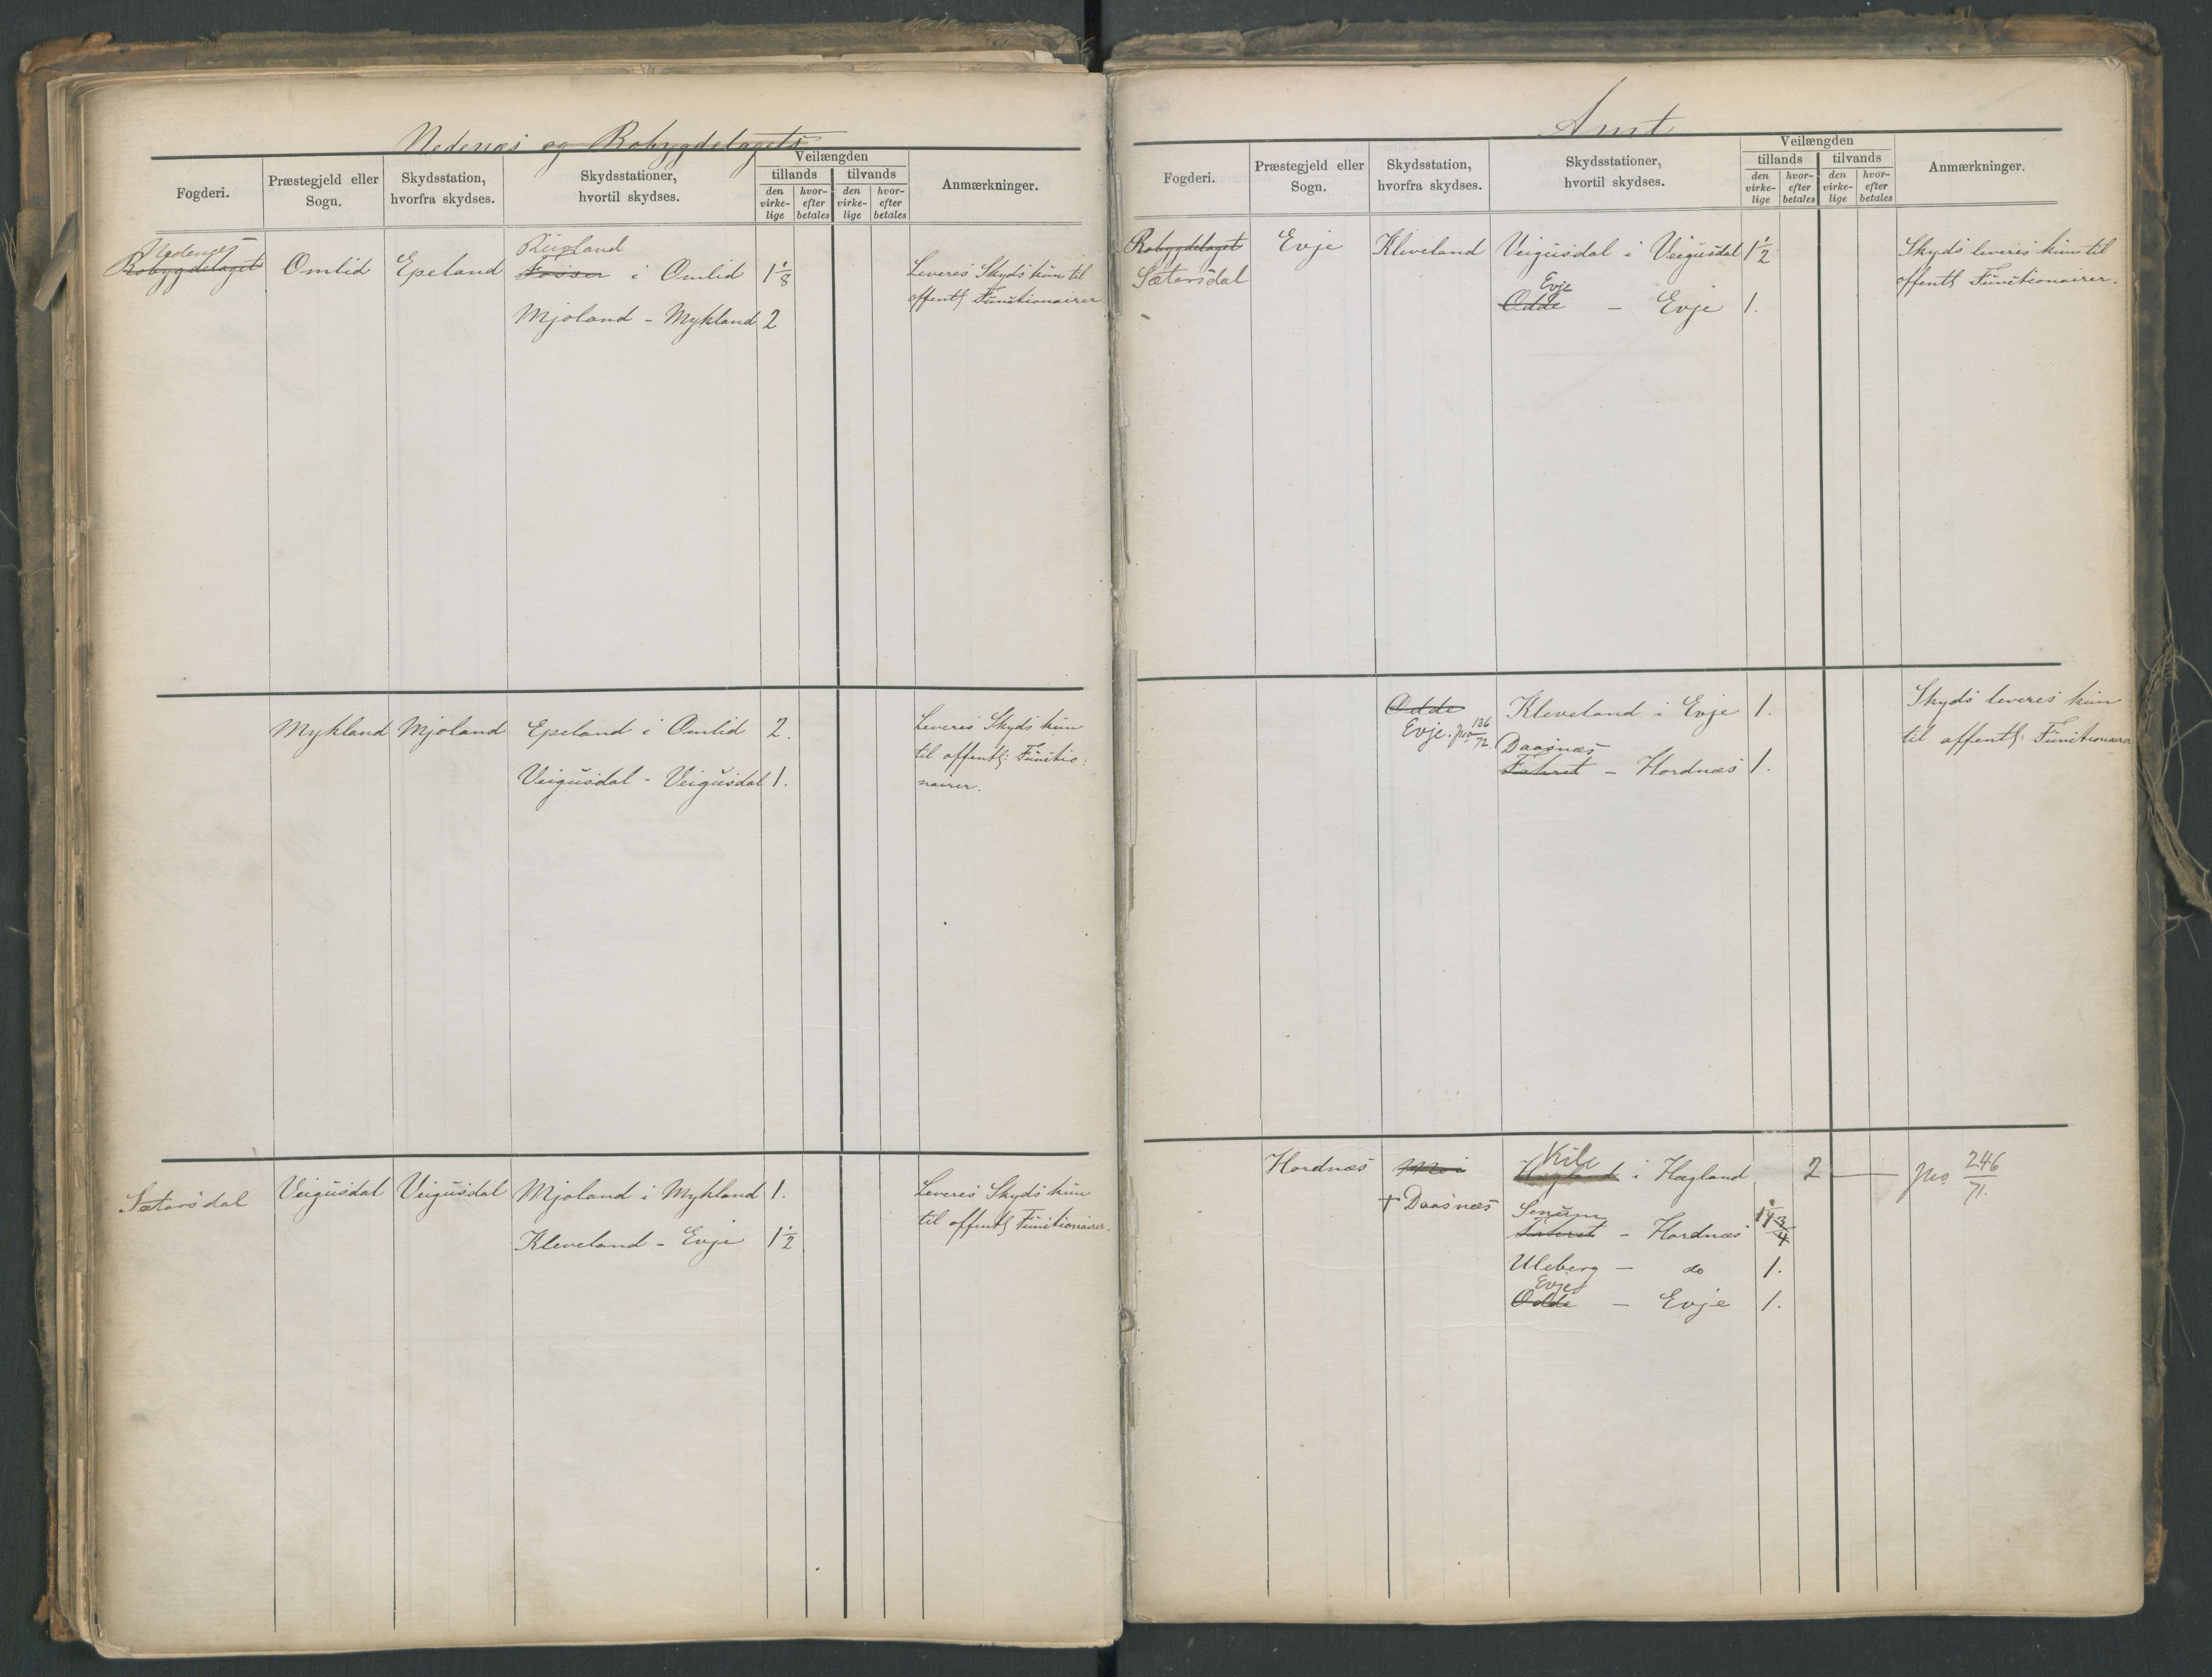 Nedenæs og Robygdelagets
Fogderi.
Præstegjeld eller
Sogn.
Skydsstation,
hvorfra skydses.
Skydsstationer,
hvortil skydses.
Veilængden
tillands
tilvands
den
virke-
lige
hvor-
efter
betales
den
virke-
lige
hvor-
efter
betales
Anmærkninger.
Nedenæs
Robygdelaget
Omlid
Epeland
i Omlid 1 1/8
Mjoland - Mykland 2
Leveres Skyds kun til
offentl Functionairer.
Mykland
Mjoland
Epeland i Omlid 2.
Veigusdal - Veigusdal 1.
Leveres Skyds kun
til offentl: Functio:
nairer.
Sætersdal
Veigusdal
Veigusdal
Mjoland i Mykland 1.
Kleveland - Evje 1 1/2
Leveres Skyds kun
til offentl Functionairer.
Amt
Fogderi.
Præstegjeld eller
Sogn.
Skydsstation,
hvorfra skydses.
Skydsstationer,
hvortil skydses.
Veilængden
tillands
tilvands
den
virke-
lige
hvor-
efter
betales
den
virke-
lige
hvor-
efter
betales
Anmærkninger.
Robygdelaget
Sætersdal
Evje
Kleveland
Veigusdal i Veigusdal 1 1/2
Evje
Odde - Evje 1.
Skyds leveres kun til
offentl Functionairer.
Odde
Evje. 136/72
Kleveland i Evje 1.
Daasnæs
- Hordnæs 1.
Skyds leveres kun
til offentl: Functionairer
Hordnæs
Moi
+ Daasnæs
Kile
Hægland i Hægland 2
246/71.
Senum
- Hordnæs 1 1/4 3/4
Uleberg - do 1.
Evje
Odde - Evje 1.